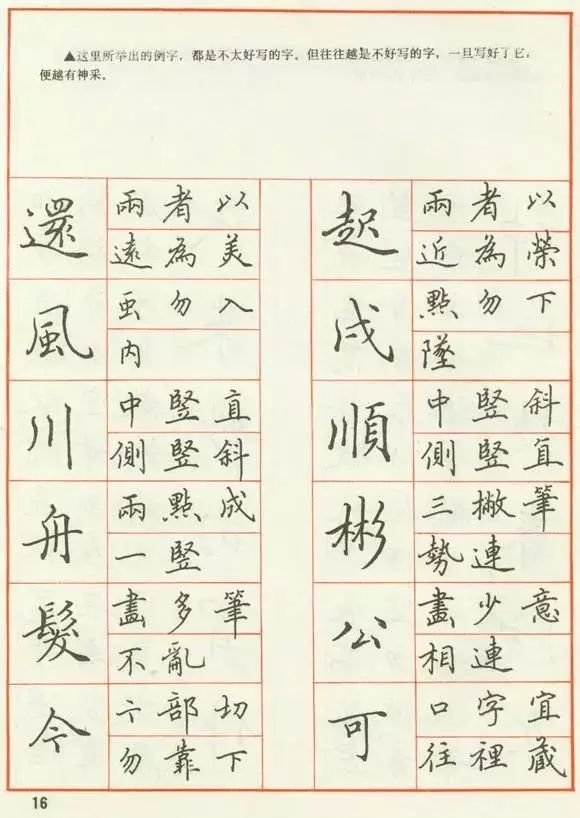 ▲这里所举出的例字，都是不太好写的字。但往往越是不好写的字，一旦写好了它，
便越有神采。
還
兩者以
遠為美
起
兩者以
近為榮
風
虫勿入
內
戍
點勿下
墜
川
中竪直
側竪斜
順
中竪斜
側竪直
舟
兩點成
一竪
彬
三撇筆
勢連
髮
畫多筆
不亂
公
畫少意
相連
今
部切
勿靠下
可
口字宜
往裡藏
16